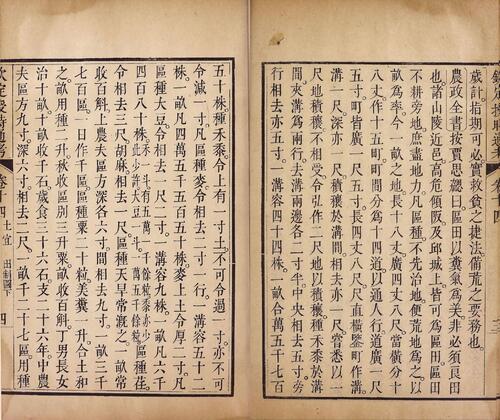 欽定授時通考 卷十四
歲計指期可必實救貧之捷法備荒之要務也
農政全書按賈思勰曰區田以糞氣為美非必良田
也諸山陵近邑高危傾阪及邱城上皆可為區田區田
不耕旁地庶盡地力凡區種不先治地便荒地為之以
畝為率令一畝之地長十八丈廣四丈八尺當橫分十
八丈作十五町町間分為十四道以通人行道廣一尺
五寸町皆廣一尺五寸長四丈八尺尺直橫鑿町作溝
溝一尺深亦一尺積穰於溝間相去亦一尺嘗悉以一
尺地積穰不相受令弘作二尺地以積穰種禾黍於溝
間夾溝為兩行去溝兩邊各二寸半中央相去五寸旁
行相去亦五寸一溝容四十四株一畝合萬五千七百
五十株種禾黍令上有一寸土不可令過一寸亦不可
令減一寸凡區種麥令相去二寸一行一溝容五十二
株一畝凡四萬五千五百五十株麥上土令厚二寸凡
區種大豆令相去一尺二寸一溝容九株一畝凡六千
四百八十株禾一斗有五萬一千餘粒黍亦少此少許大豆一斗一萬五千餘粒區種荏
令相去三尺胡麻相去一尺區種天旱常溉之一畝常
收百斛上農夫區方深各六寸間相去九寸一畝三千
七百區一日作千區區種粟二十粒美糞一升合土和
之畝用種二升秋收區別三升粟畝收百斛丁男長女
治十畝十畝收千石歲食三十六石支二十六年中農
夫區方九寸深六寸相去二尺一畝千二十七區用種
欽定授時通考 卷十四 土宜 田制圖下 四